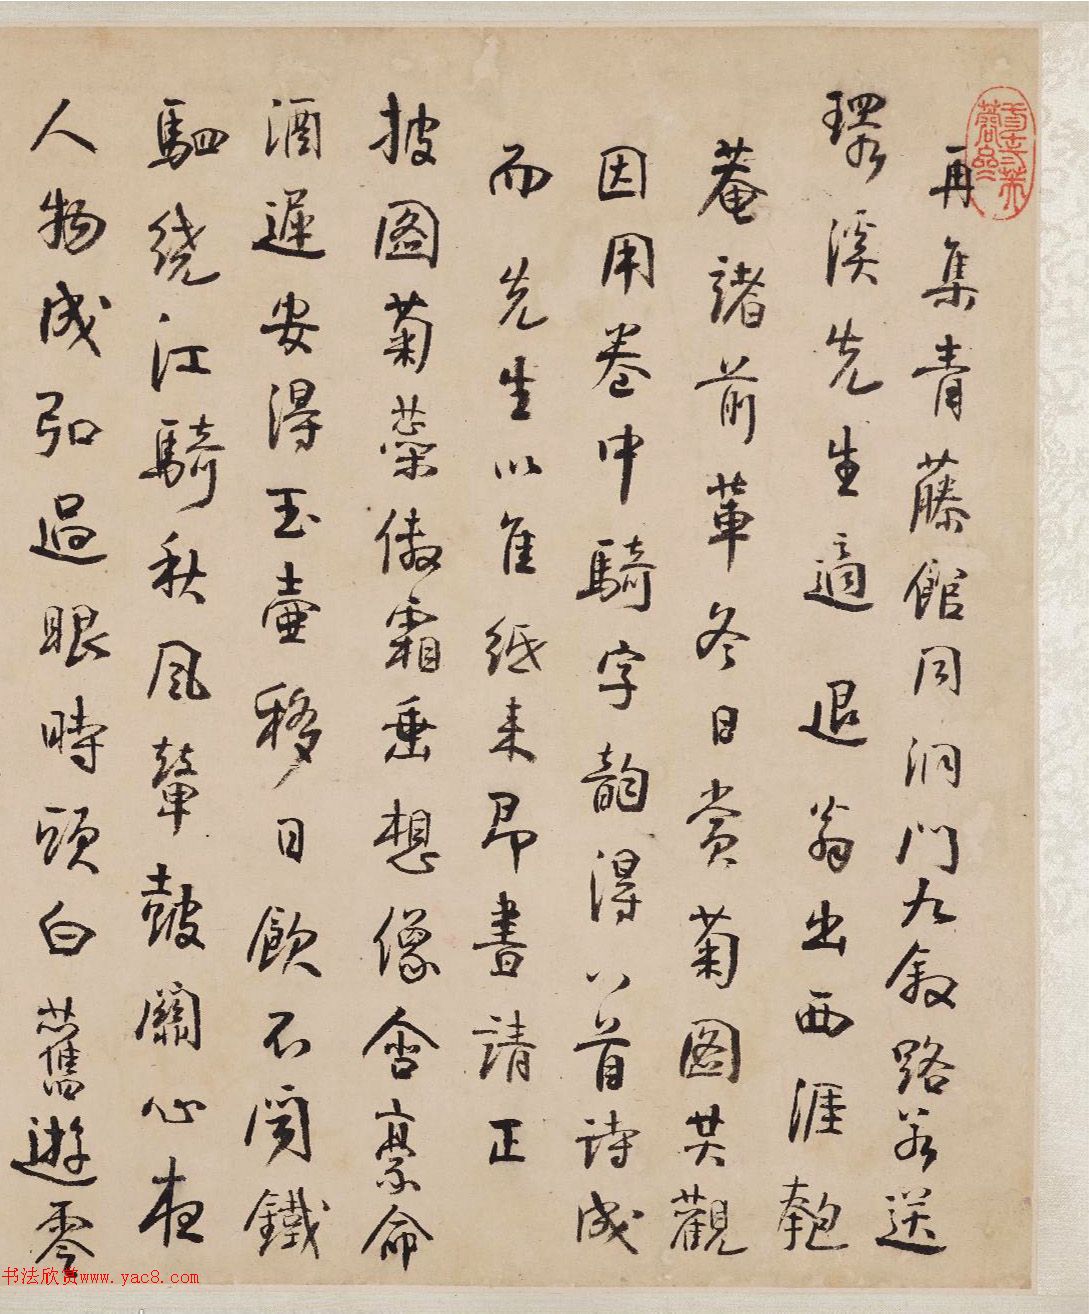 再集青藤館同洞門九敘路若送
溪先生適退翁出西涯匏
菴諸前輩冬日賞菊圖共觀
因用卷中騎字韻得八首詩成
而先生以佳紙来即書請正
披圖菊蘂傲霜垂想像含豪命
酒遲安得玉壺移日飲不聞鐵
駟繞江騎秋風鼙鼓關心夜
人物成弘過眼時頭白舊遊零
书法欣赏www.yac8.com